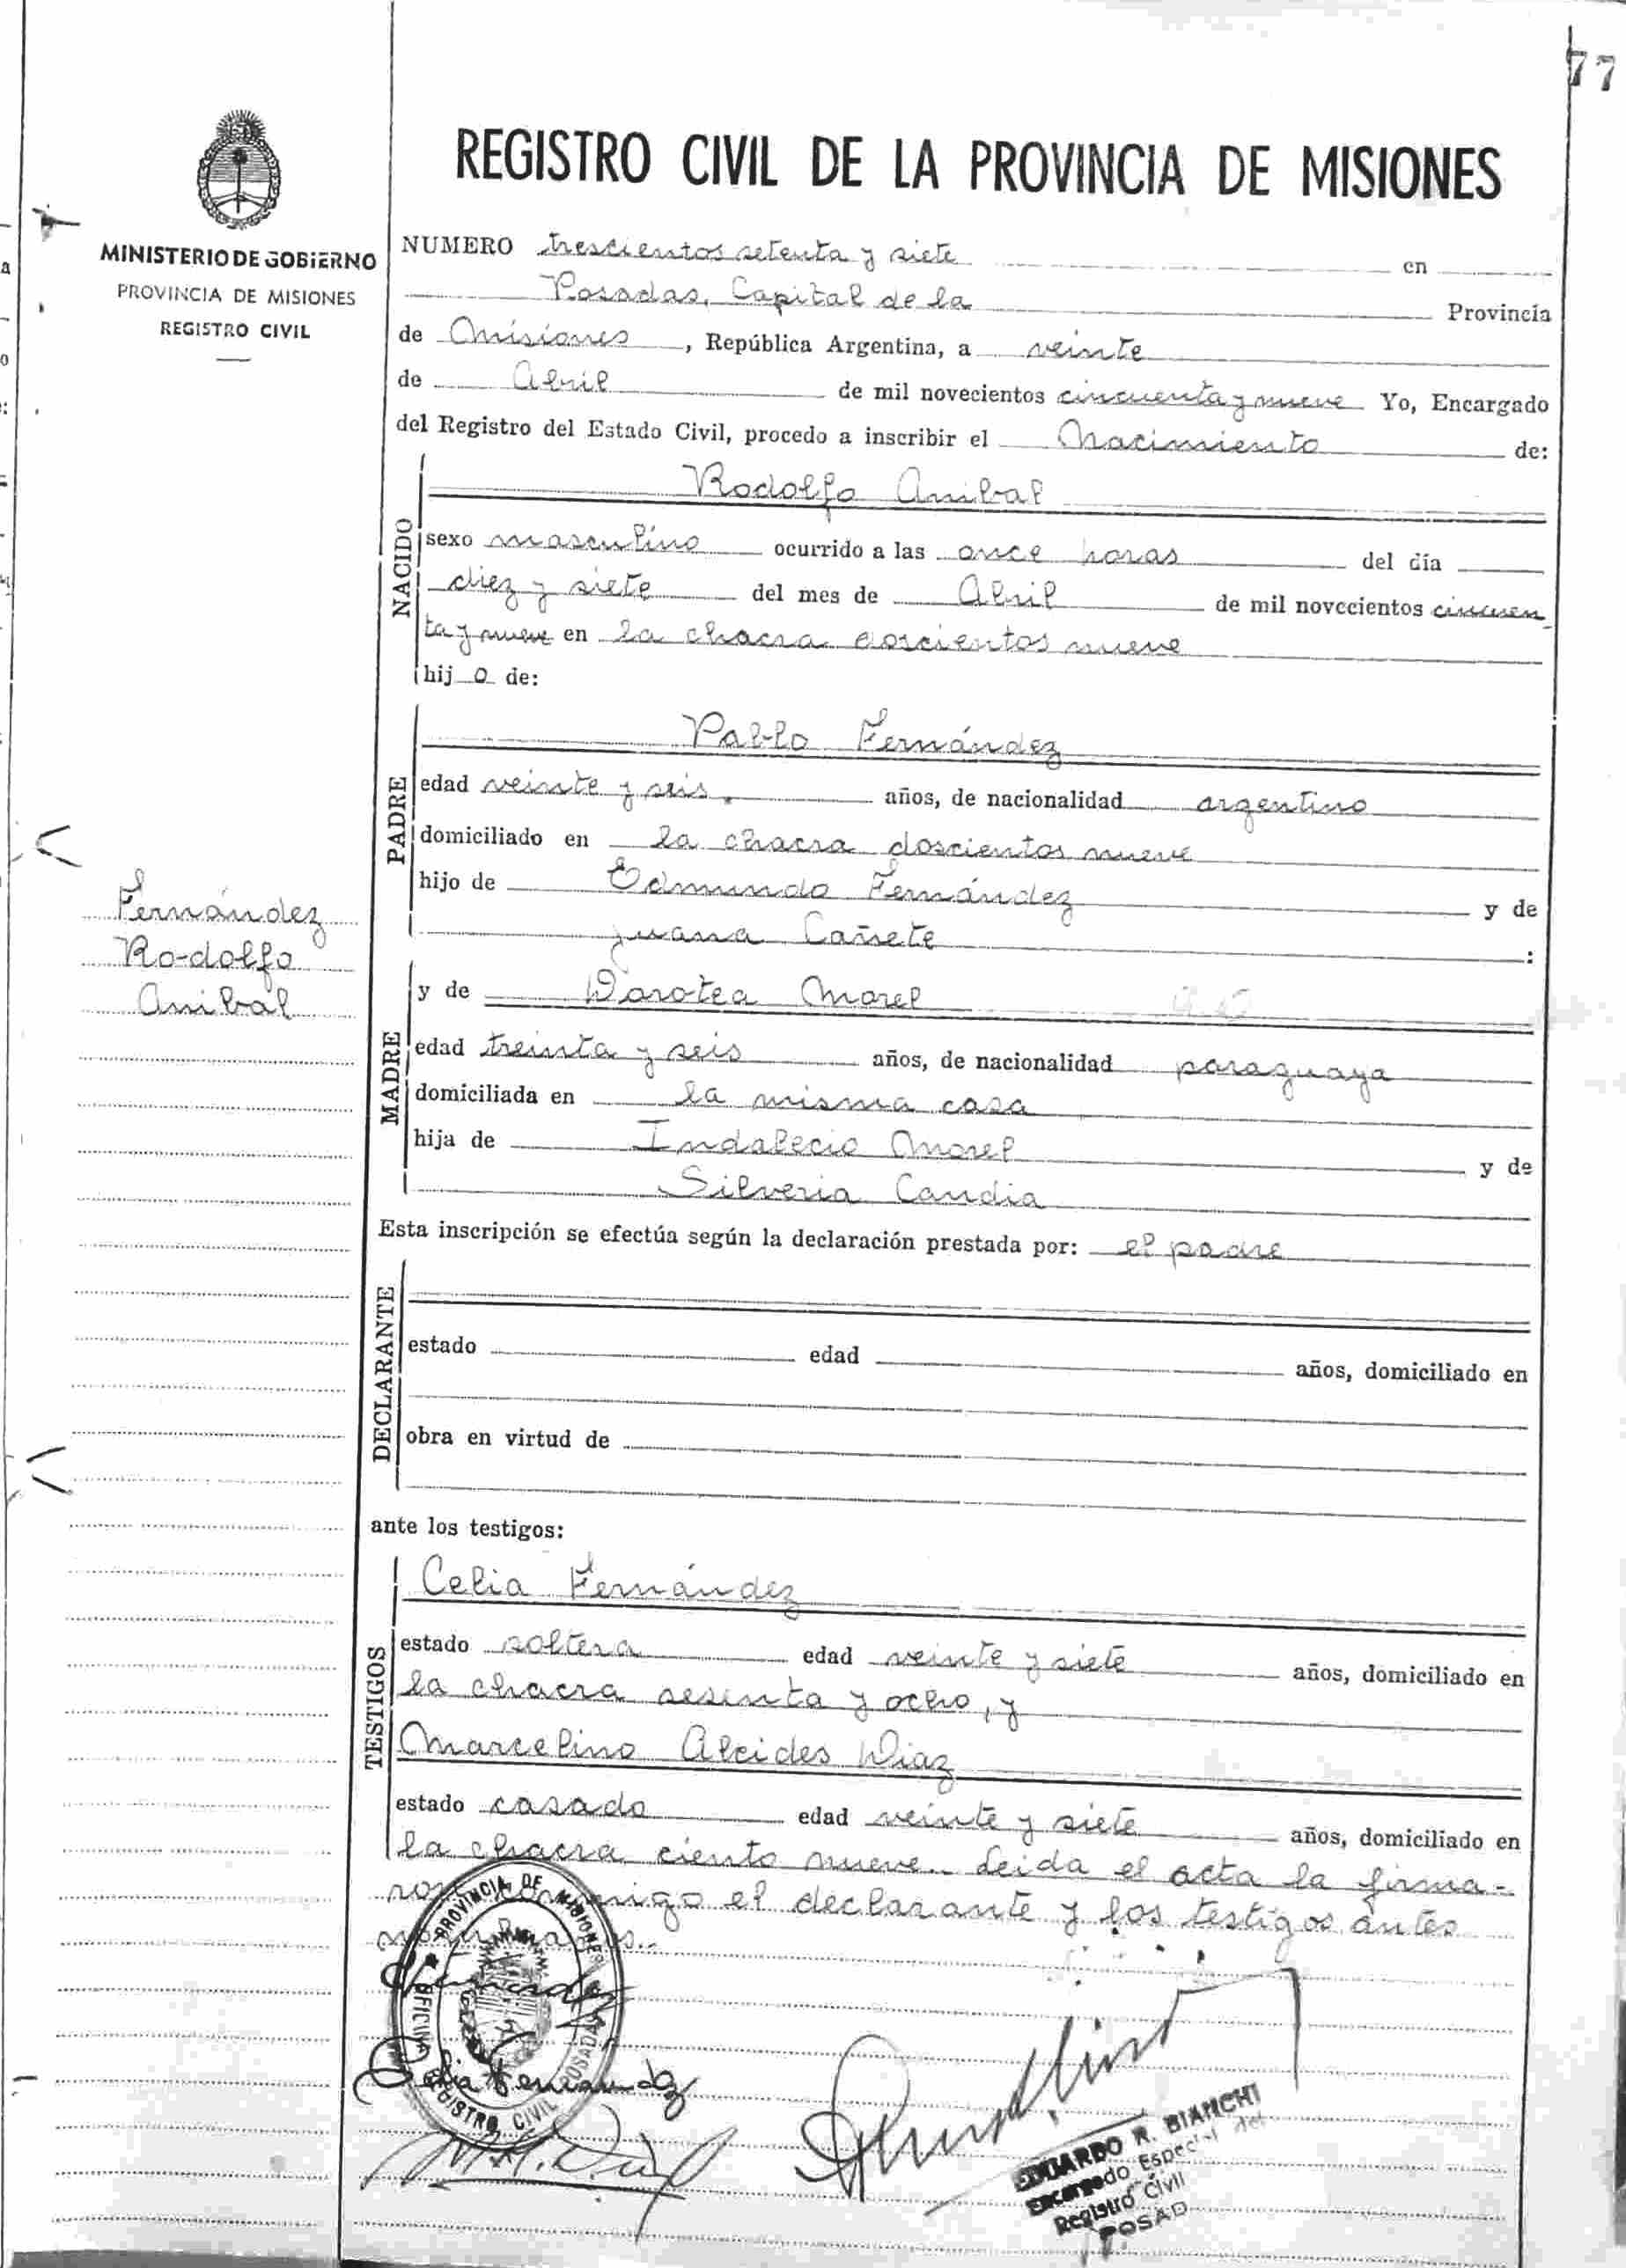 77
REGISTRO CIVIL DE LA PROVINCIA DE MISIONES
MINISTERIO DE GOBIERNO
PROVINCIA DE MISIONES
REGISTRO CIVIL
NUMERO trescientos setenta y siete en
Posadas, Capital de la Provincia
de Misiones, República Argentina, a veinte
de Abril de mil novecientos cincuenta y nueve Yo, Encargado
del Registro del Estado Civil, procedo a inscribir el Nacimiento de:
NACIDO
Rodolfo Anibal
sexo masculino ocurrido a las once horas del día
diez y siete del mes de Abril de mil novecientos cincuen
ta y nueve en la chacra doscientos nueve
hijo de:
PADRE
Pablo Fernández
edad veinte y seis. años, de nacionalidad argentino
domiciliado en la chacra doscientos nueve
hijo de Edmundo Fernández y de
Juana Cañete :
Fernández
Rodolfo
Anibal
MADRE
y de Dorotea Morel
edad treinta y seis años, de nacionalidad paraguaya
domiciliada en la misma casa
hija de Indalecio Morel y de
Silveria Candia
Esta inscripción se efectúa según la declaración prestada por: el padre
DECLARANTE
estado edad años, domiciliado en
obra en virtud de
ante los testigos:
TESTIGOS
Celia Fernández
estado soltera edad veinte y siete años, domiciliado en
la chacra sesenta y ocho, y
Marcelino Alcides Diaz
estado casado edad veinte y siete años, domiciliado en
la chacra ciento nueve. Leida el acta la firma-
ron conmigo el declarante y los testigos antes
PROVINCIA DE MISIONES
OFICINA REGISTRO CIVIL POSADAS
Fernandez
Celia Fernandez
M. A. Diaz
EDUARDO R. BIANCHI
Encargado Especial del
Registro Civil
POSAD